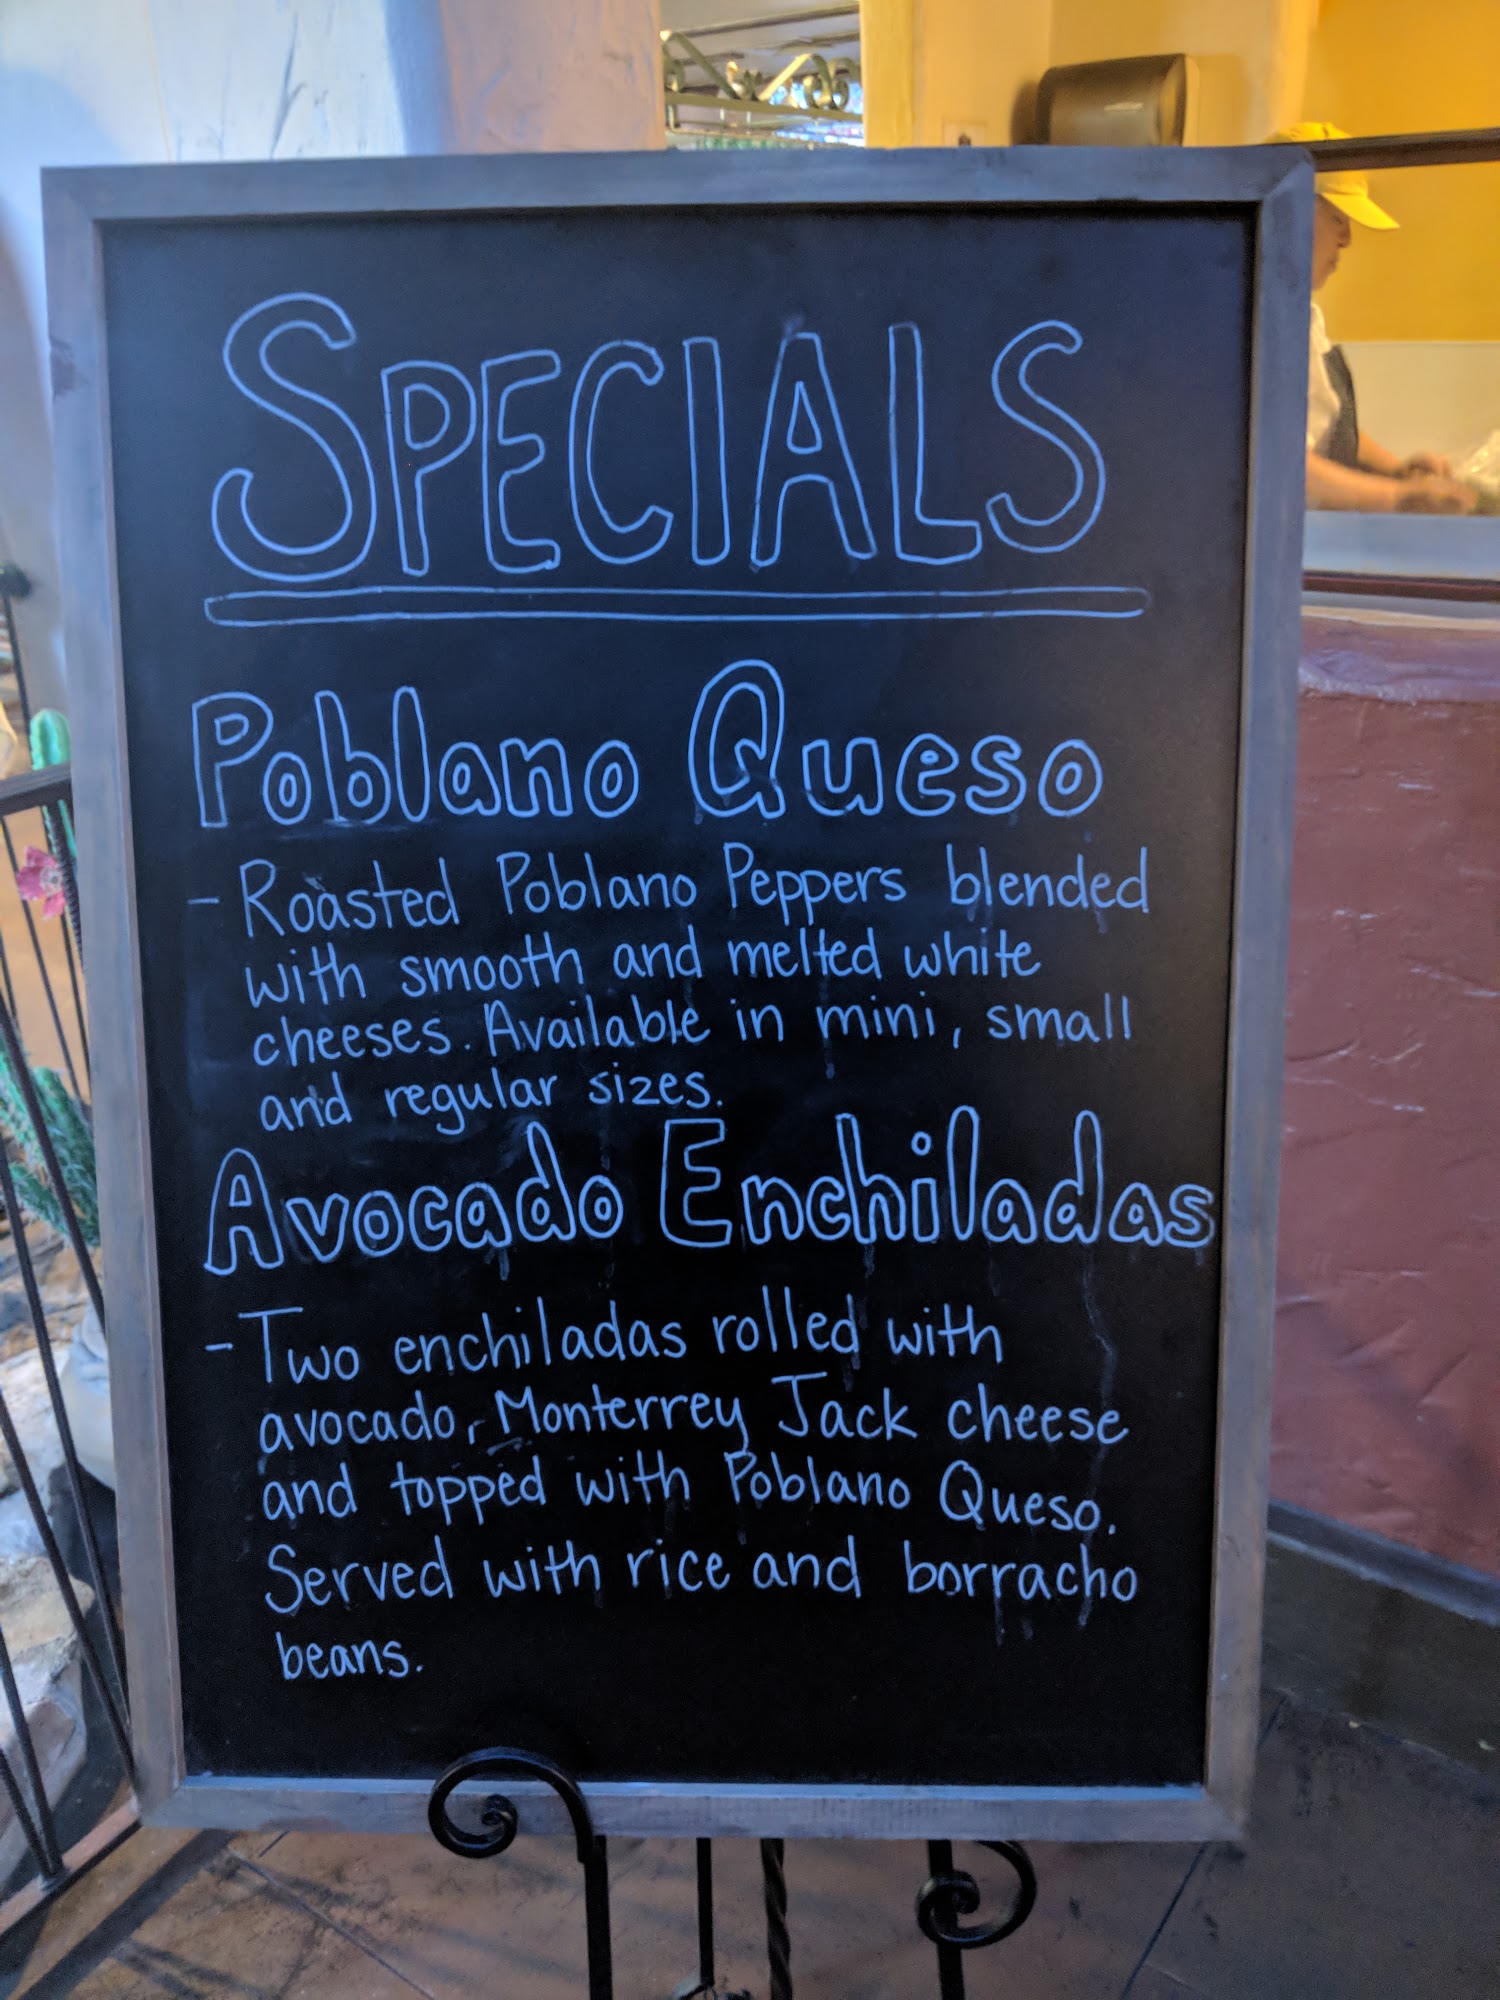 SPECIALS
Poblano Queso
- Roasted Poblano Peppers blended
with smooth and melted white
cheeses. Available in mini, small
and regular sizes.
Avocado Enchiladas
- Two enchiladas rolled with
avocado, Monterrey Jack cheese
and topped with Poblano Queso.
Served with rice and borracho
beans.